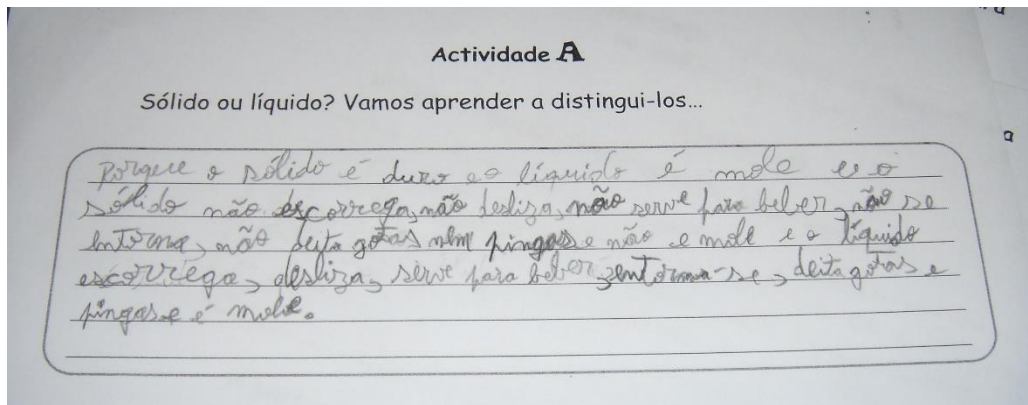 Actividade A
Sólido ou líquido? Vamos aprender a distingui-los...
Porque o sólido é duro e o líquido é mole e o
sólido não escorrega, não desliza, não serve para beber, não se
entorna, não deita gotas nem pingas e não e mole e o líquido
escorrega, desliza, serve para beber, entorna-se, deita gotas e
pingas e é mole.
a